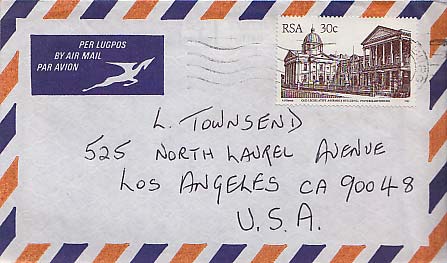 PER LUGPOS
BY AIR MAIL
PAR AVION
RSA 30c
OLD LEGISLATIVE ASSEMBLY BUILDING, PIETERMARITZBURG
L. TOWNSEND
525 NORTH LAUREL AVENUE
LOS ANGELES CA 90048
U.S.A.